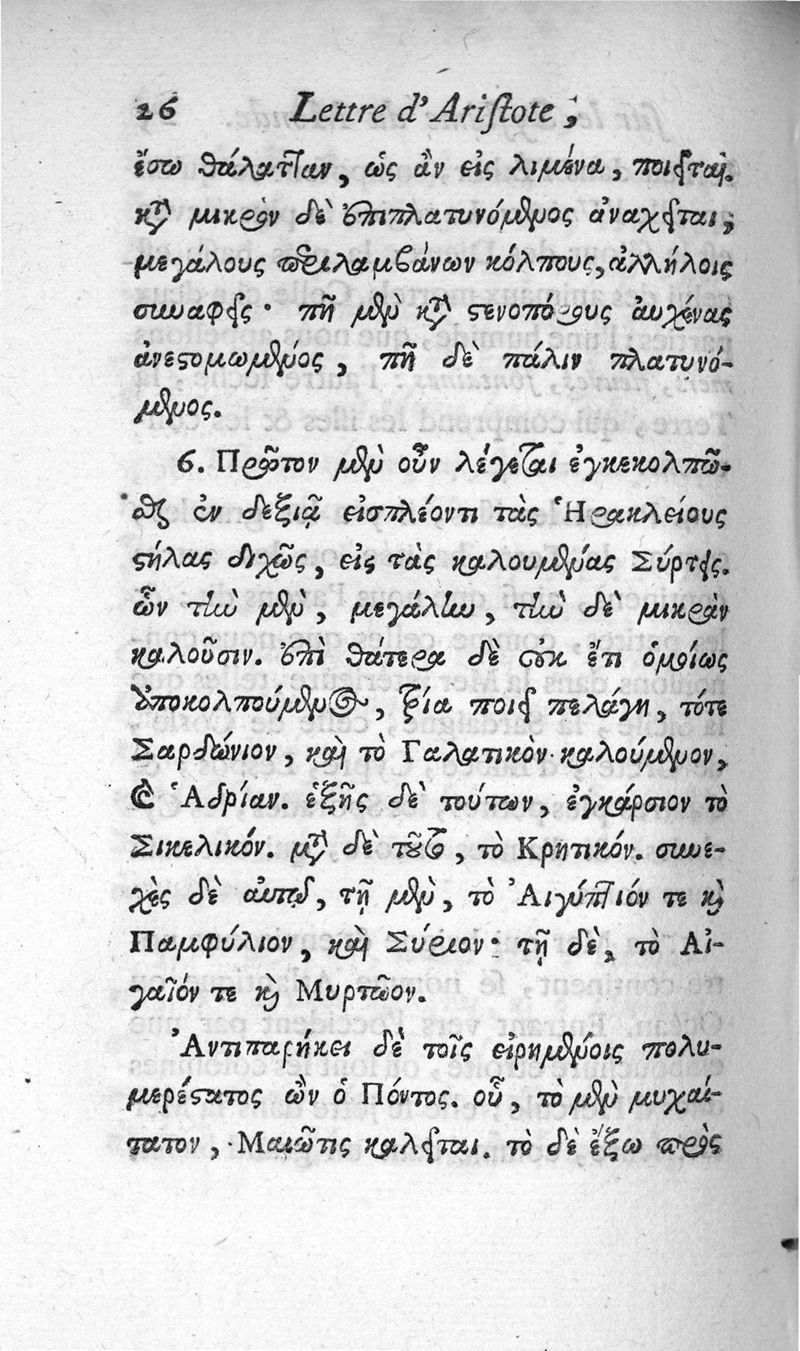 26 Lettre d'Ariſtote,
ἔσω θάλατταν, ὡς ἂν εἰς λιμένα, ποιεῖται.
κατὰ μικρὸν δὲ ἐπιπλατυνόμενος ἀναχεῖται,
μεγάλους περιλαμβάνων κόλπους, ἀλλήλοις
συναφεῖς· πῆ μὲν κατὰ στενοπόρους αὐχένας
ἀνεστομωμένος, πῆ δὲ πάλιν πλατυνό-
μενος.
6. Πρῶτον μὲν οὖν λέγεται ἐγκεκολπῶ-
σθαι ἐν δεξιᾷ εἰσπλέοντι τὰς Ἡρακλείους
στήλας διχῶς, εἰς τὰς καλουμένας Σύρτεις.
ὧν τὴν μὲν, μεγάλην, τὴν δὲ μικρὰν
καλοῦσιν. ἐπὶ θάτερα δὲ οὐκ ἔτι ὁμοίως
ὑποκολπούμενος, τρία ποιεῖ πελάγη, τότε
Σαρδώνιον, καὶ τὸ Γαλατικὸν καλούμενον,
καὶ Ἀδρίαν. ἑξῆς δὲ τούτων, ἐγκάρσιον τὸ
Σικελικόν. μετὰ δὲ τοῦτο, τὸ Κρητικόν. συνε-
χὲς δὲ αὐτοῦ, τῇ μὲν, τὸ Αἰγύπτιόν τε καὶ
Παμφύλιον, καὶ Σύριον· τῇ δὲ, τὸ Αἰ-
γαῖόν τε καὶ Μυρτῶον.
Ἀντιπαρήκει δὲ τοῖς εἰρημένοις πολυ-
μερέστατος ὢν ὁ Πόντος. οὗ, τὸ μὲν μυχαί-
τατον, Μαιῶτις καλεῖται. τὸ δὲ ἔξω πρὸς